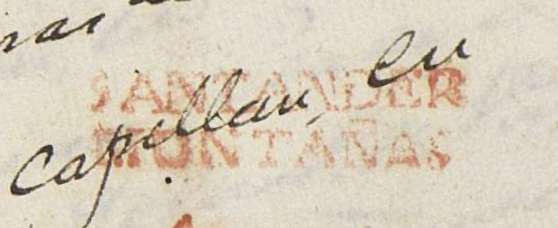 SANTANDER
MONTAÑAS
capellan, en